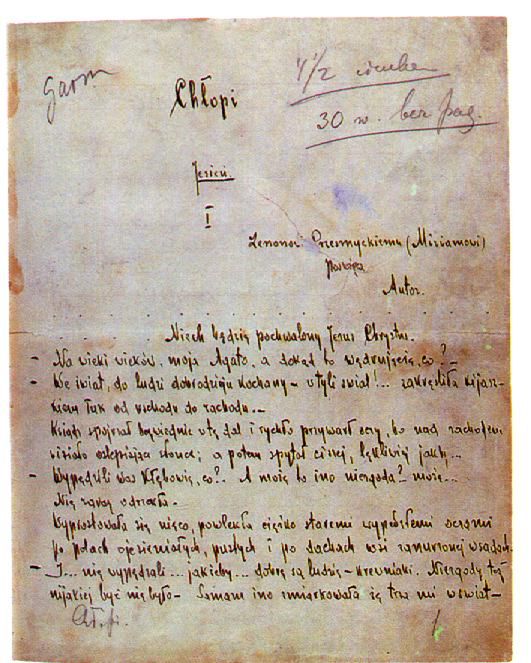 garm
1 1/2
30 w. bez pag.
Chłopi
Jesień.
I
Zenonowi Przesmyckiemu (Miriamowi)
poświęca
Autor.
Niech będzie pochwalony Jezus Chrystus.
- Na wieki wieków, moja Agato, a dokąd to wędrujecie, co? -
- We świat, do ludzi dobrodzieju kochany - w tyli świat!... zakreśliła kijasz-
kiem łuk od wschodu do zachodu. -
Ksiądz spojrzał bezwiednie w tę dal i rychło przywarł oczy, bo nad zachodem
wisiało oślepiające słońce; a potem spytał ciszej, lękliwiej jakby...
- Wypędzili was Kłębowie, co?. A może to ino niezgoda?. może...
Nie zaraz odrzekła. -
Wyprostowała się nieco, powlekła ciężko staremi wypełzłemi oczami
po polach ojesieniałych, pustych i po dachach wsi zanurzonej w sadach.
- I... nie wypędzali... jakżeby... dobre są ludzie - krewniaki. Niezgody też
nijakiej być nie było - Samam ino zmiarkowała że trza mi w świat -